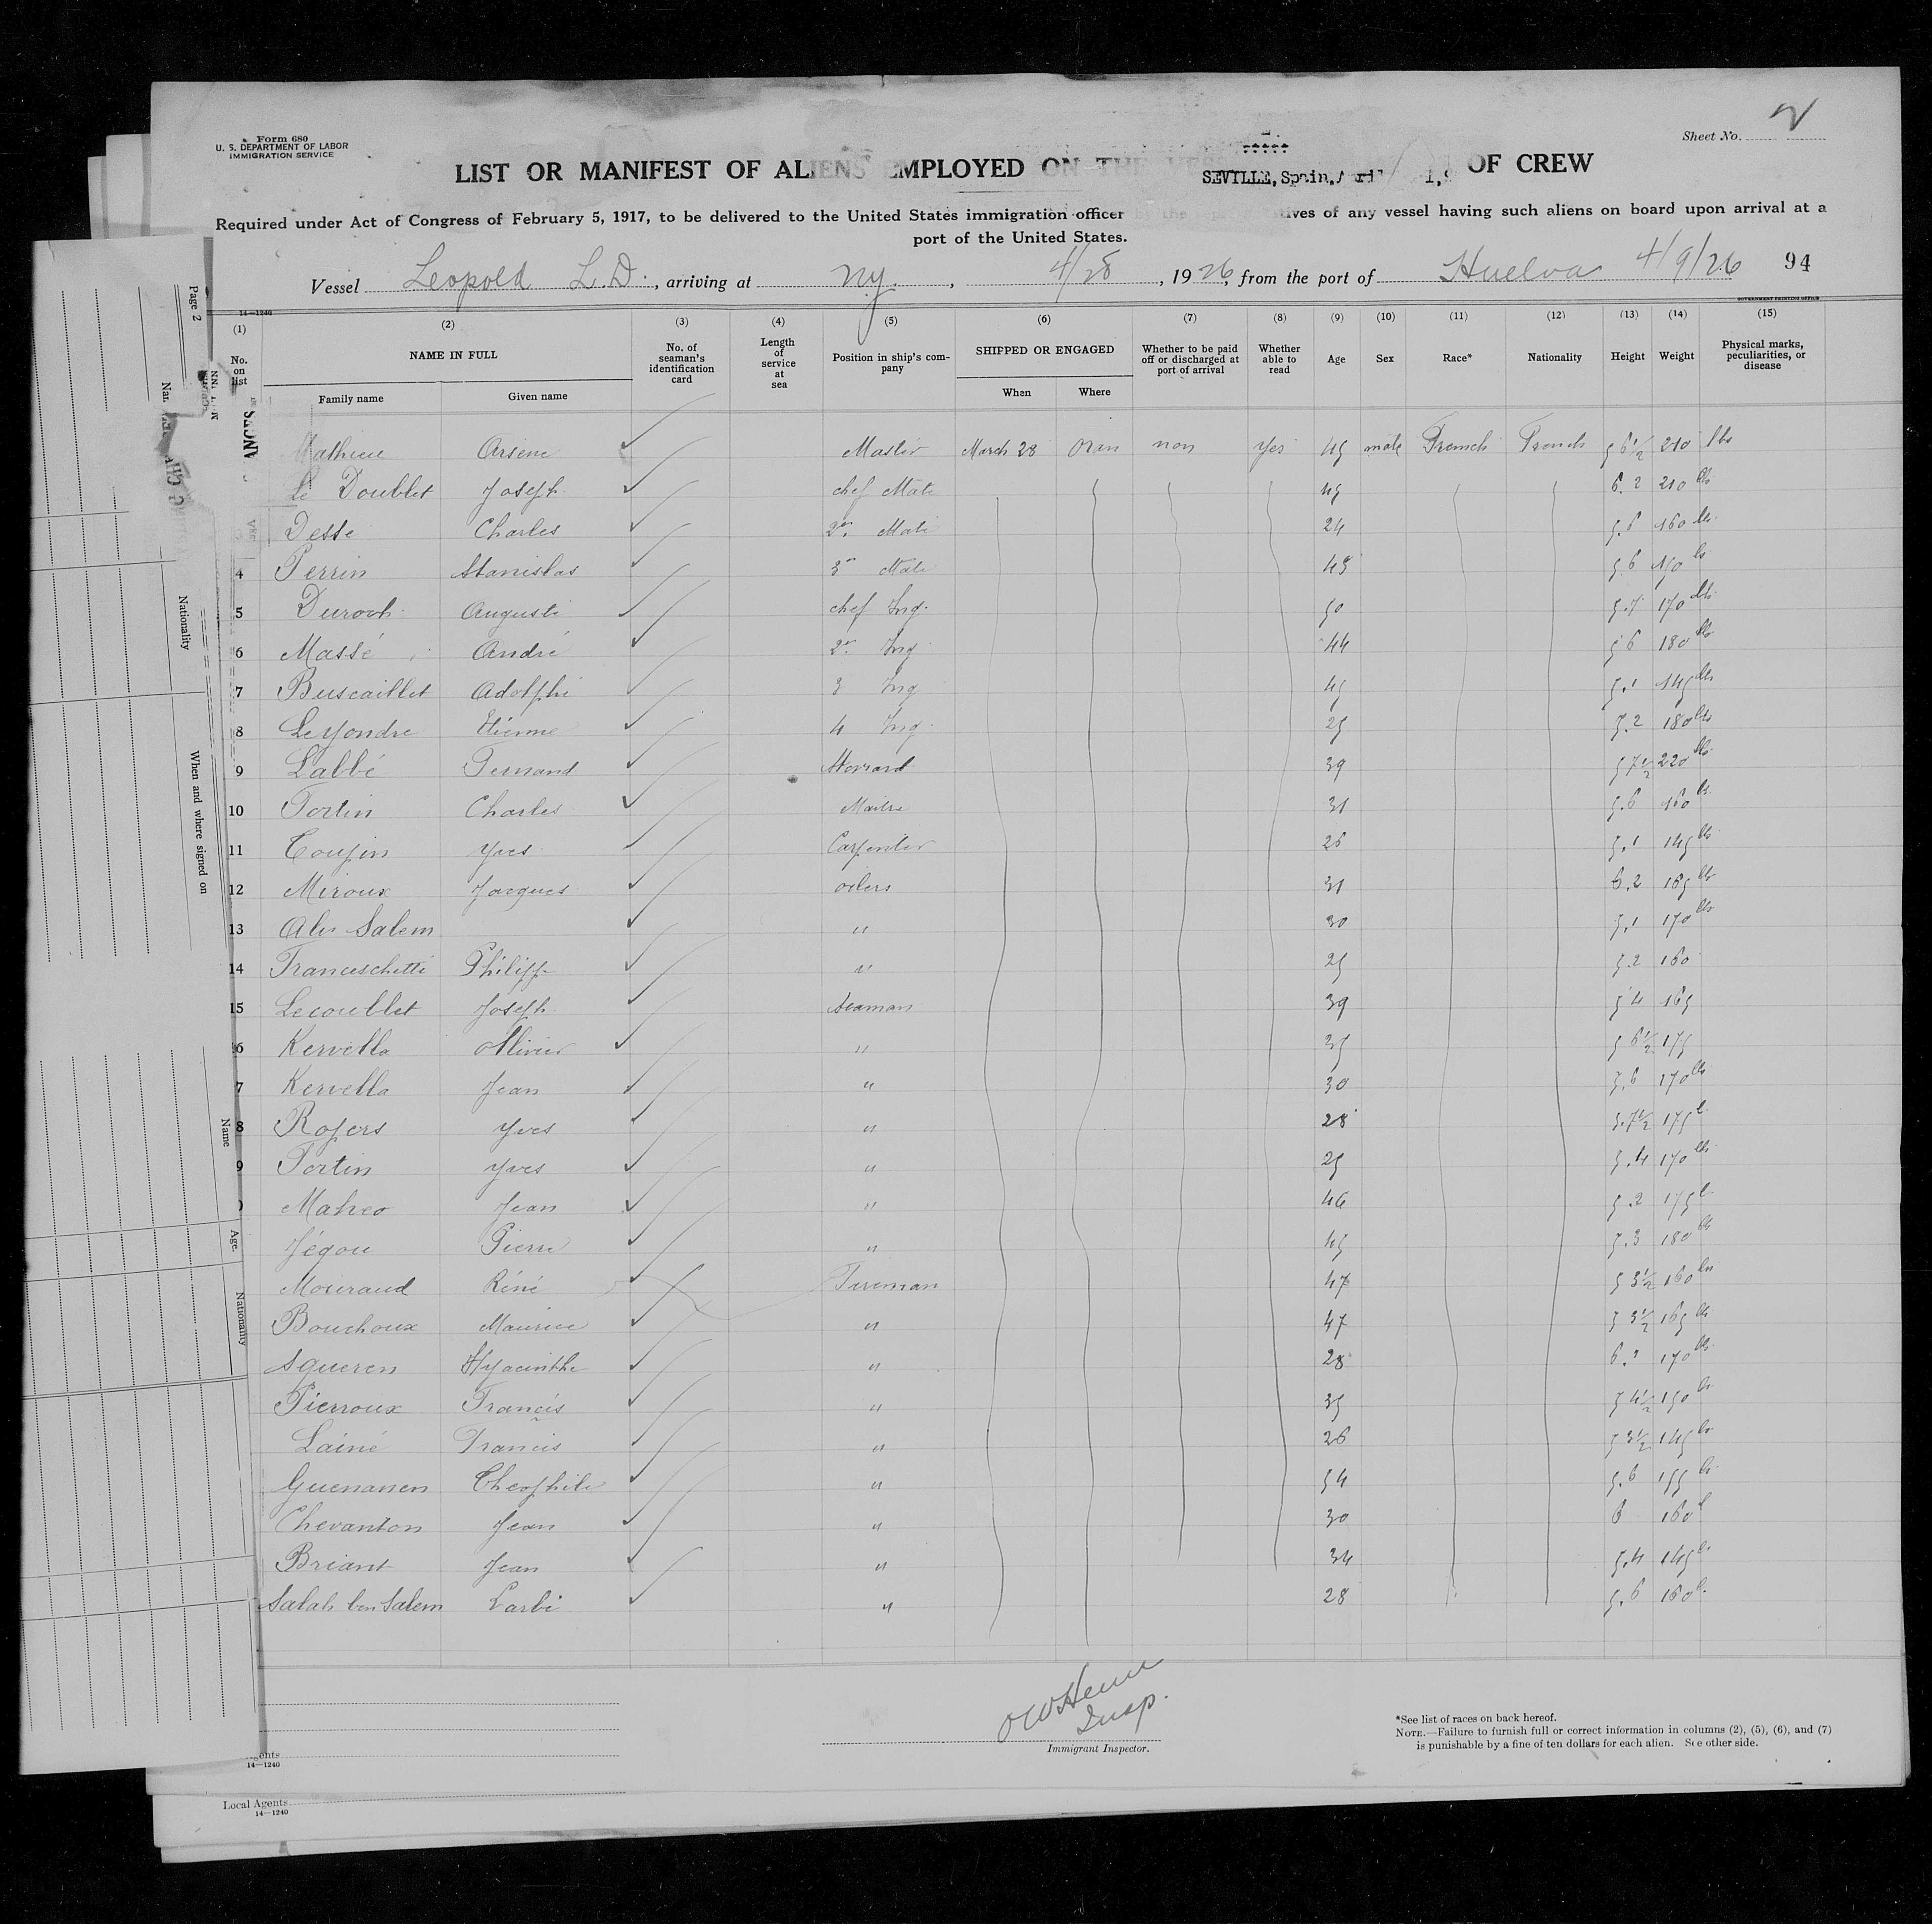 Form 680
U. S. DEPARTMENT OF LABOR
IMMIGRATION SERVICE
Sheet No. 2
LIST OR MANIFEST OF ALIENS EMPLOYED ON THE OF CREW
SEVILLE, Spain, April
Required under Act of Congress of February 5, 1917, to be delivered to the United States immigration officer by the ives of any vessel having such aliens on board upon arrival at a
port of the United States.
Vessel Leopold L.D., arriving at NY., 4/28, 1926, from the port of Huelva 4/9/26 94
GOVERNMENT PRINTING OFFICE
14—1240
(1) (2) (3) (4) (5) (6) (7) (8) (9) (10) (11) (12) (13) (14) (15)
No. on list NAME IN FULL No. of seaman's identification card Length of service at sea Position in ship's company SHIPPED OR ENGAGED Whether to be paid off or discharged at port of arrival Whether able to read Age Sex Race* Nationality Height Weight Physical marks, peculiarities, or disease
Family name Given name When Where
Mathieu Arsene Master March 28 Oran non Yes 45 male French French 5 6 1/2 210 lbs
Le Doublet Joseph chef Mate 45 6.2 210 lbs
Desse Charles 2n Mate 24 5.6 160 lbs
4 Perrin Stanislas 3n Mate 43 5 6 lbs
5 Duroch Auguste chef Ing. 50 5.7 170 lbs
6 Massé André 2n Ing 44 5 6 180 lbs
7 Buscaillet Adolphe 3 Ing 45 5.1 145 lbs
8 Leyondre Etienne 4 Ing. 25 5.2 180 lbs
9 Labbé Fernand 39 5 7 1/2 220 lbs
10 Fortin Charles Maitre 31 5.6 160 ls
11 Coupin Yves Carpenter 26 5.1 145 lbs
12 Miroux Jacques oilers 31 6.2 165 lbs
13 Ali Salem " 30 5.1 170 lbs
14 Franceschetti Philipp " 25 5.2 160
15 Lecoublet Joseph Seaman 39 5 4 165
6 Kervella Ollivier " 35 5 6 1/2 175
7 Kervella Jean " 30 5.6 170 lbs
8 Ropers Yves " 28 5.7 1/2 175 l
9 Fortin Yves " 25 5.4 170 lbs
Maheo Jean " 46 5.2 175 l
Jégou Pierre " 45 5.3 180 lbs
Mouraud Réné Fireman 47 5 3 1/2 160 lbs
Bouchoux Maurice " 47 5 3 1/2 165 lbs
Squeren Hyacinthe " 28 6.2 170 lbs
Pierroux Francis " 35 5 4 1/2 150 ls
Lainé Francis " 26 5 3 1/2 145 ls
Guenanen Theophile " 54 5.6 155 ls
Chevanton Jean " 30 6 160 l
Briant Jean " 34 5.4 145 ls
Salah ben Salem Larbi " 28 5.6 160 l.
Insp.
Immigrant Inspector.
*See list of races on back hereof.
NOTE.—Failure to furnish full or correct information in columns (2), (5), (6), and (7)
is punishable by a fine of ten dollars for each alien. See other side.
14—1240
Local Agents
14—1240
Page 2
Nationality
When and where signed on
Name
Age.
Nationality